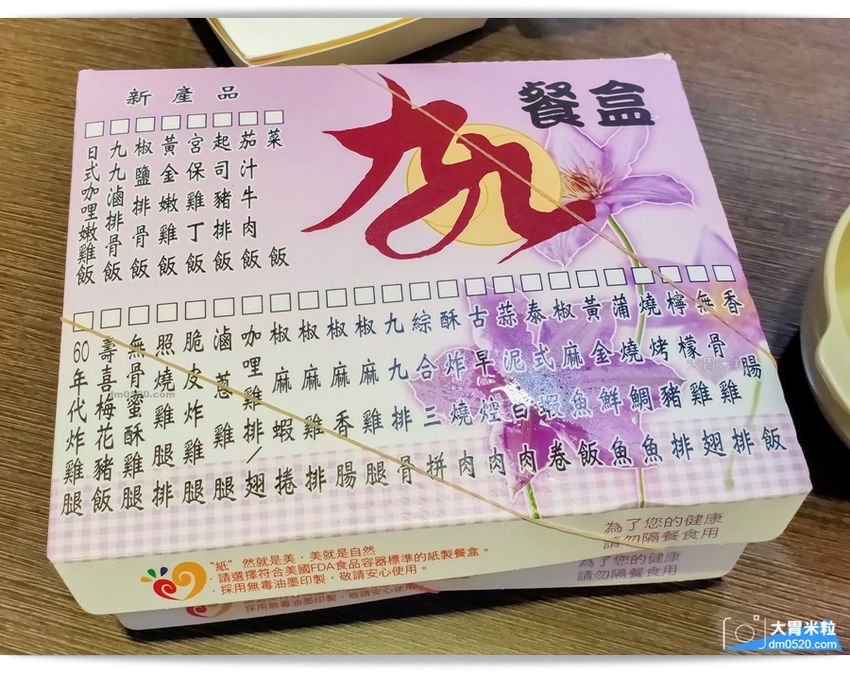 餐盒
九九
新產品
日式咖哩嫩雞飯
九九滷排骨飯
椒鹽排骨飯
黃金嫩雞飯
宮保雞丁飯
起司豬排飯
茄汁牛肉飯
菜飯
60年代炸雞腿
壽喜梅花豬飯
無骨蜜酥雞腿
照燒雞排
脆皮炸雞腿
滷蔥雞腿
咖哩雞排/翅
椒麻蝦捲
椒麻雞排
椒麻香腸
椒麻雞腿
九九排骨
綜合三拼
酥炸燒肉
古早煙肉
蒜泥白肉
泰式蝦卷
椒麻魚飯
黃金鮮魚
蒲燒鯛魚
燒烤豬排
檸檬雞翅
無骨雞排
香腸飯
大胃米粒
dm0520.com
為了您的健康
請勿隔餐食用
"紙"然就是美．美就是自然
．請選擇符合美國FDA食品容器標準的紙製餐盒。
．採用無毒油墨印製，敬請安心使用。
為了您的健康
請勿隔餐食用
採用無毒油墨印製，敬請安心使用。
大胃米粒
dm0520.com